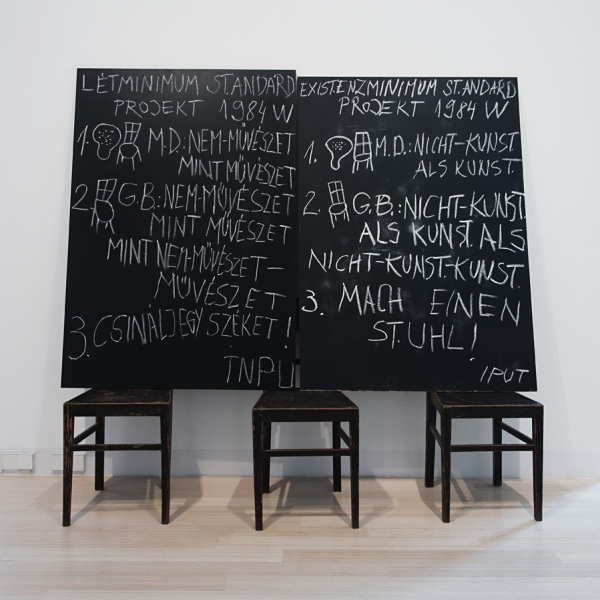 LÉTMINIMUM ST.ANDARD
PROJEKT 1984 W
1. M.D.: NEM-MŰVÉSZET
MINT MŰVÉSZET
2. G.B.: NEM-MŰVÉSZET
MINT MŰVÉSZET
MINT NEM-MŰVÉSZET-
MŰVÉSZET
3. CSINÁLJ EGY SZÉKET!
TNPU
EXISTENZMINIMUM ST.ANDARD
PROJEKT 1984 W
1. M.D.: NICHT-KUNST
ALS KUNST.
2. G.B.: NICHT-KUNST
ALS KUNST. ALS
NICHT-KUNST-KUNST.
3. MACH EINEN
STUHL!
IPUT